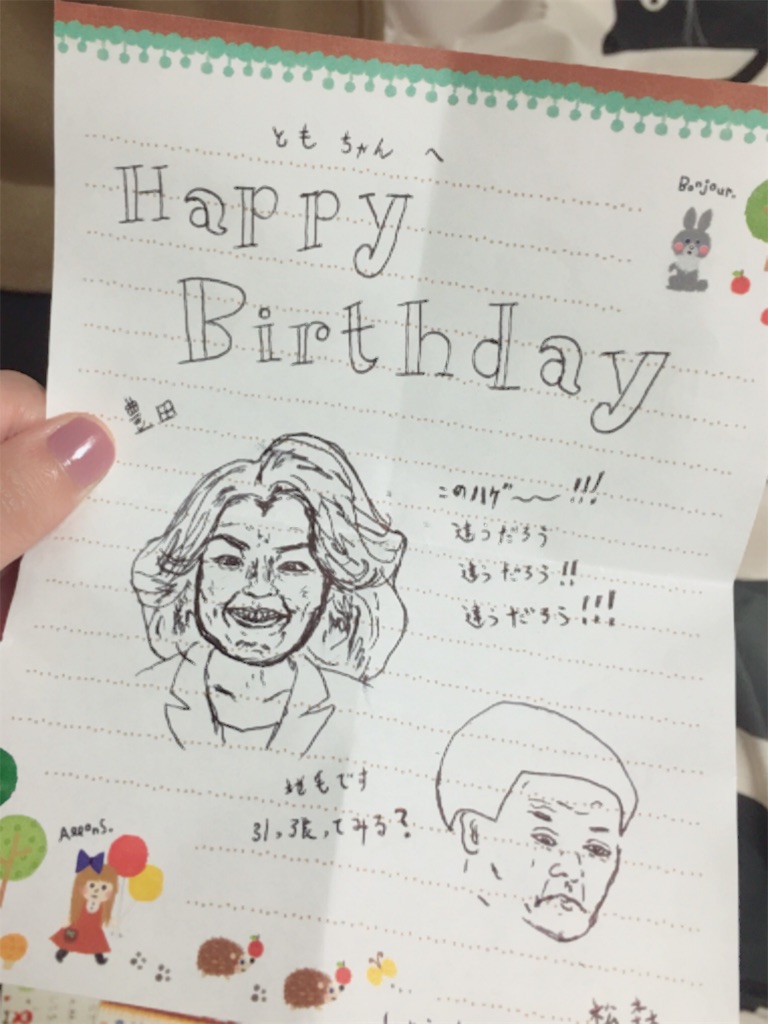 ともちゃんへ
Happy
Bonjour.
Birthday
豊田
このハゲ〜〜!!!
違うだろう
違うだろう!!
違うだろう!!!
地毛です
引っ張ってみる?
Allons.